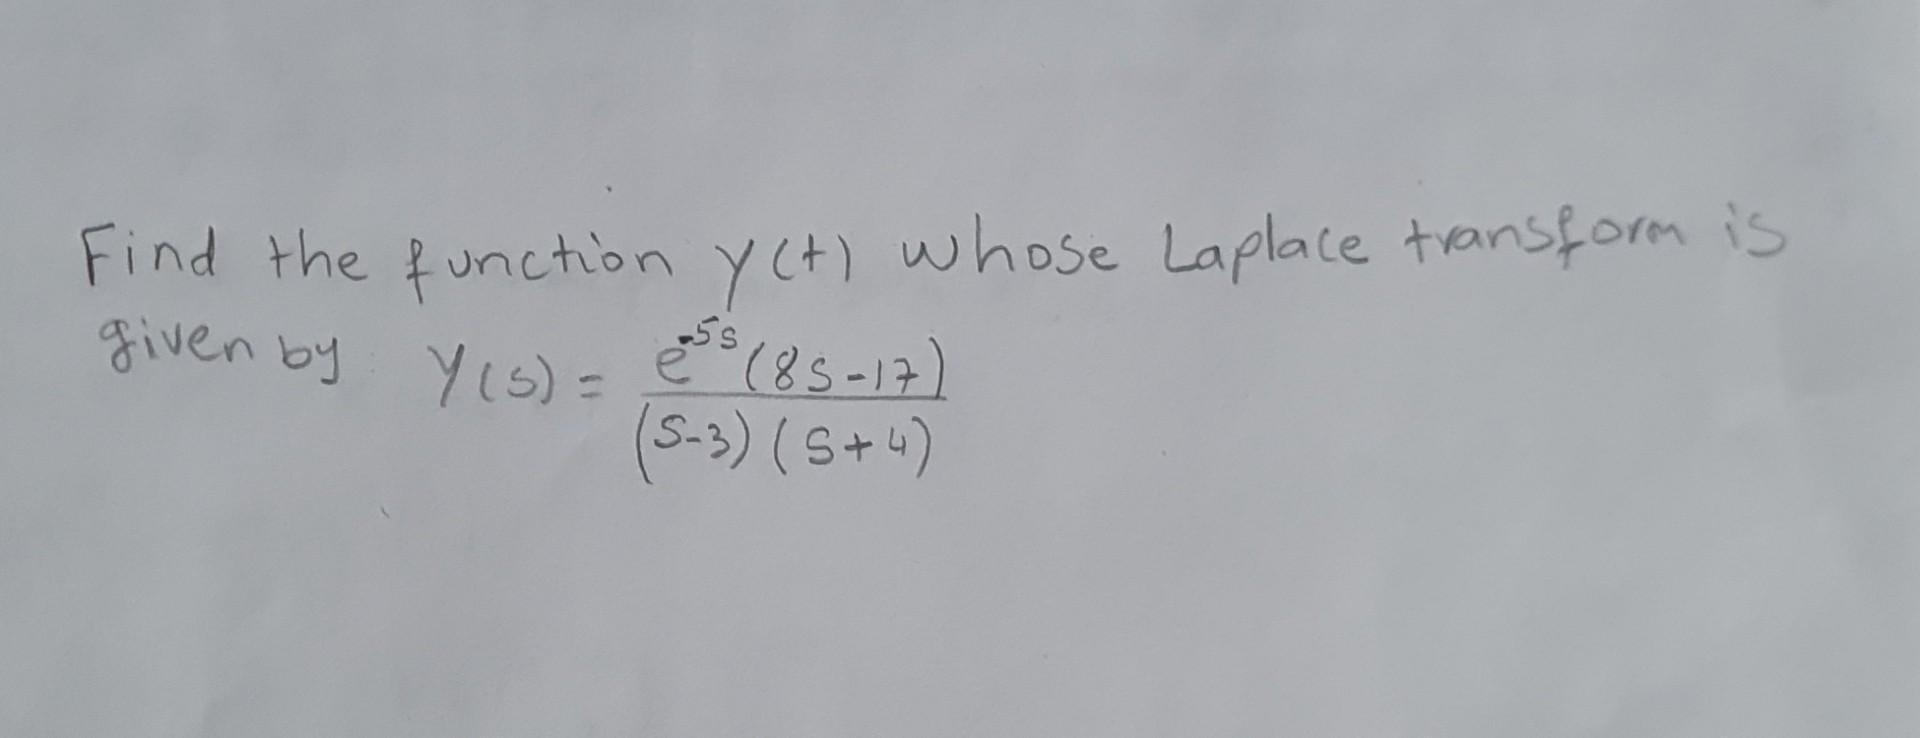 Find the function y(t) whose Laplace transform is
given by Y(s) = e^{-5s}(8s-17) / (s-3)(s+4)